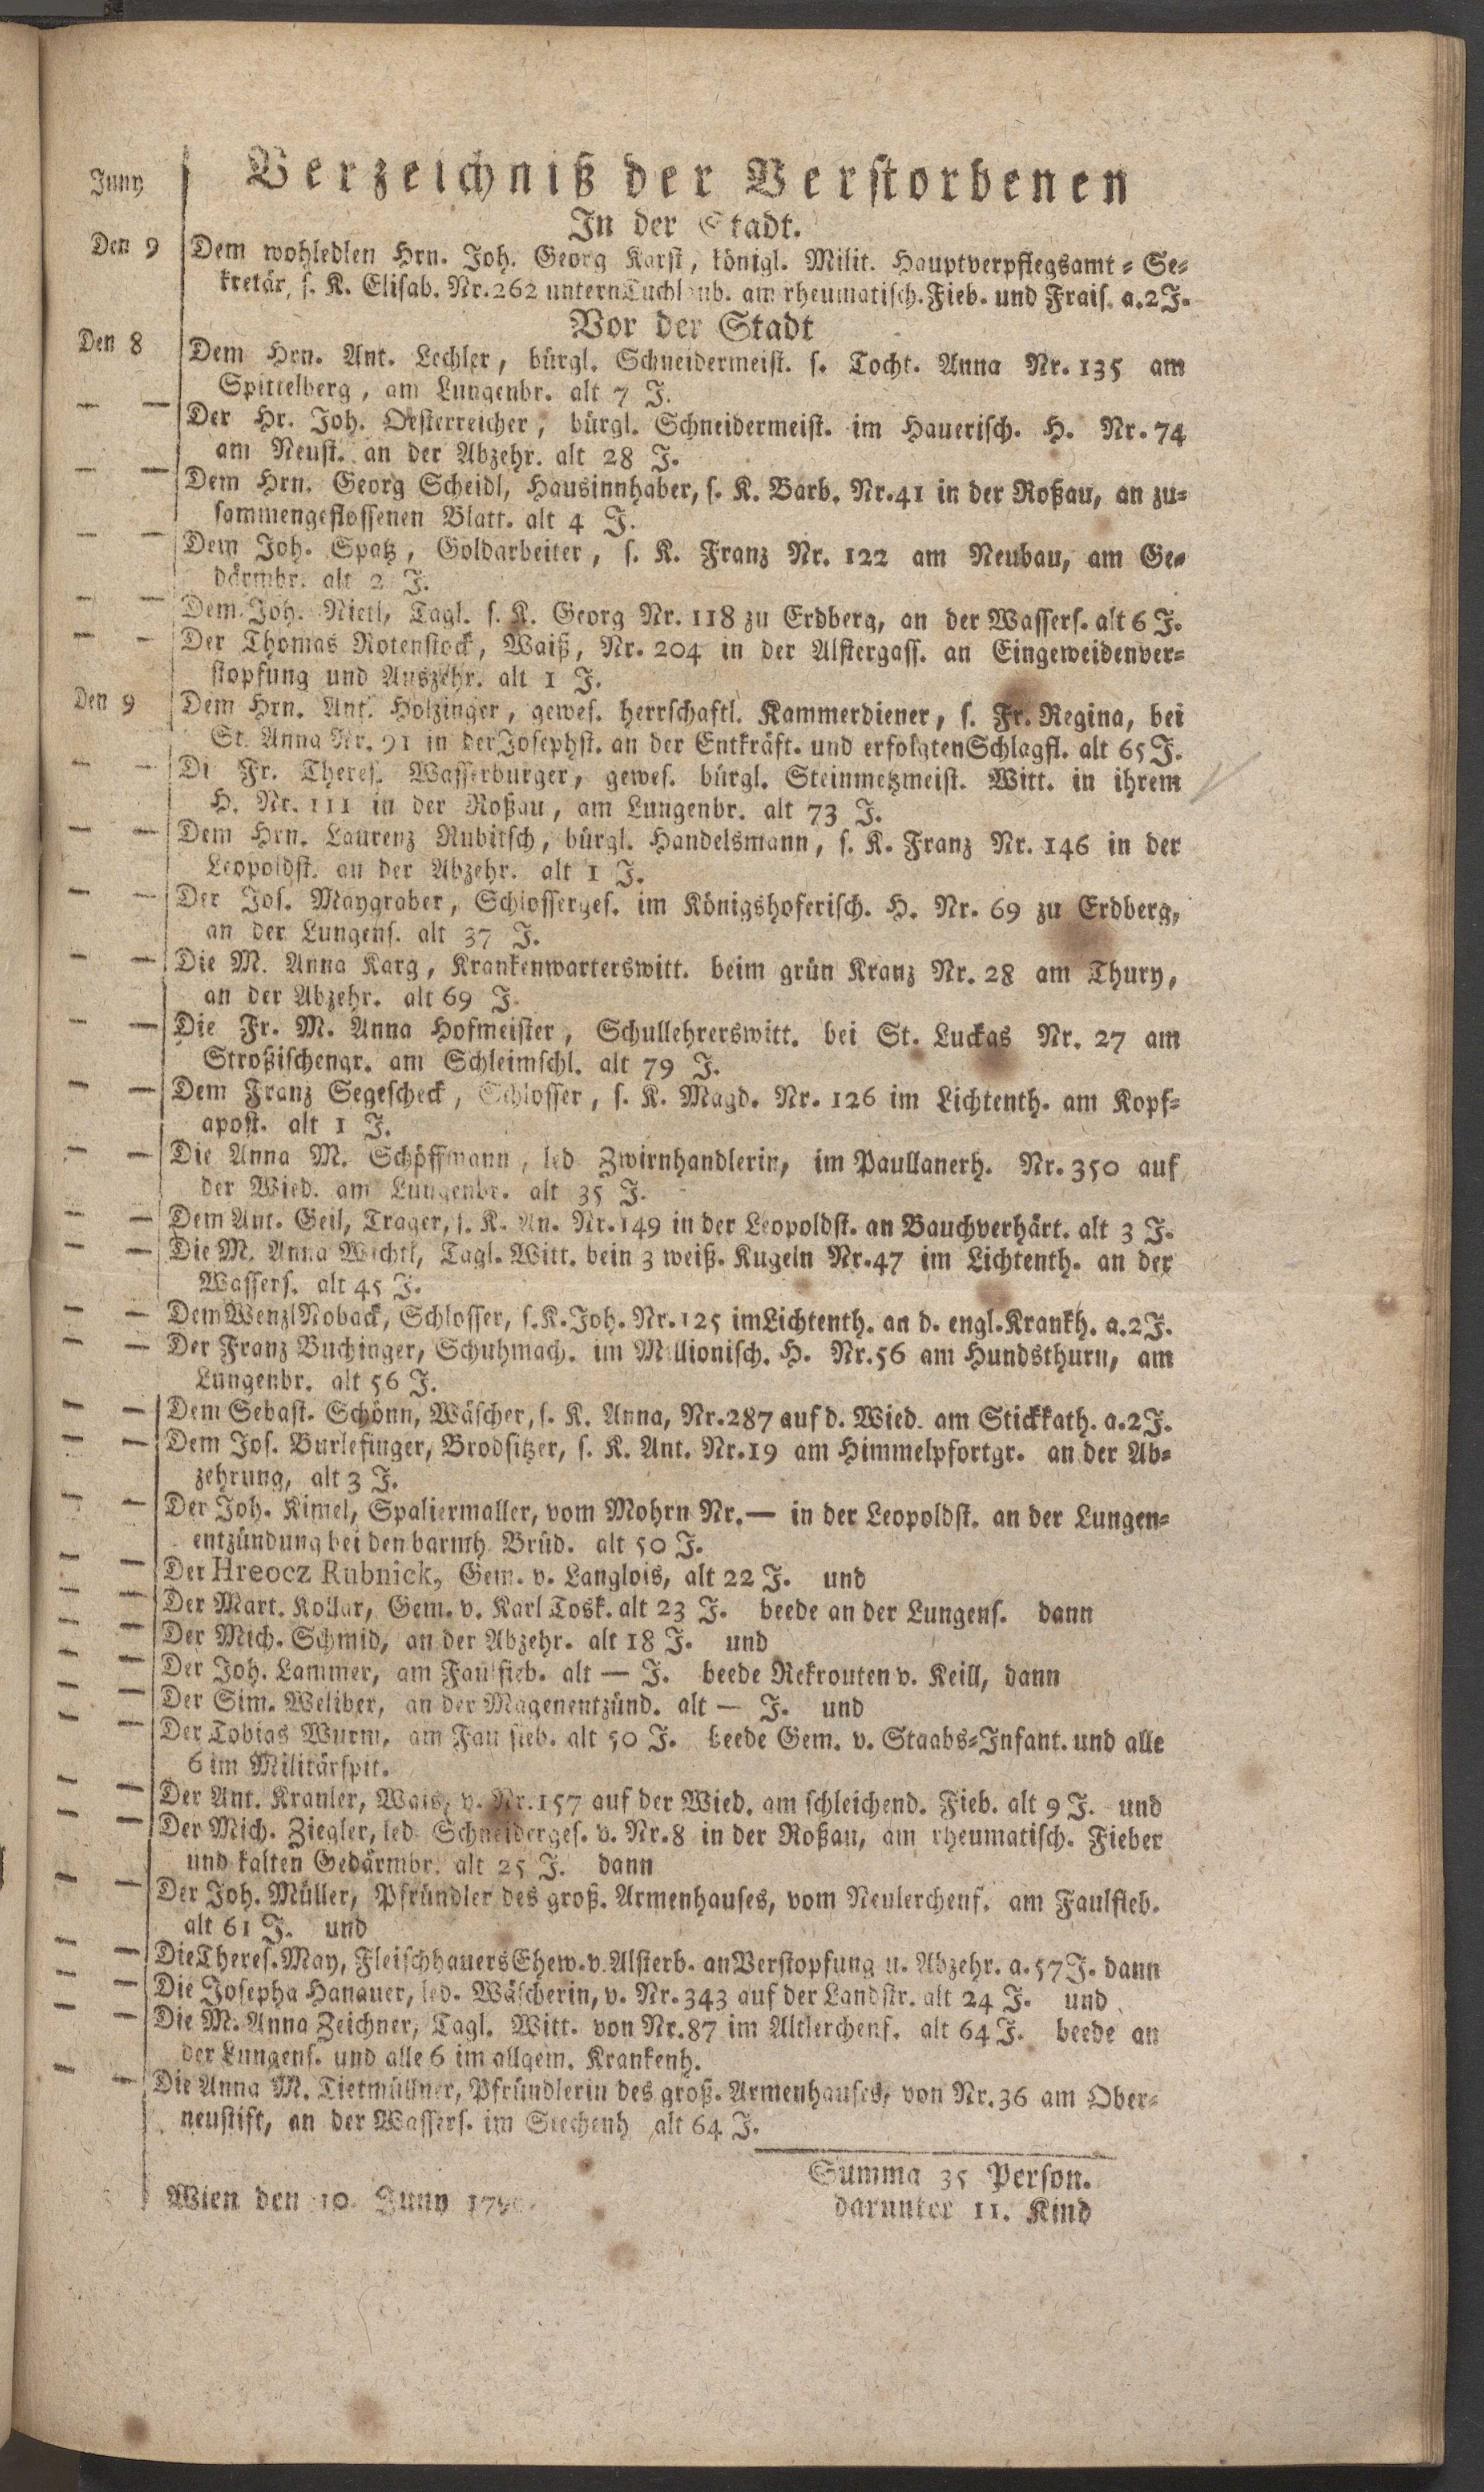 Juny
Verzeichniß der Verstorbenen
In der Stadt.
Den 9 Dem wohledlen Hrn. Joh. Georg Karst, königl. Milit. Hauptverpflegsamt = Se=
kretär, s. K. Elisab. Nr. 262 untern Tuchlaub. am rheumatisch. Fieb. und Frais. a. 2 J.
Vor der Stadt
Den 8 Dem Hrn. Ant. Lechler, bürgl. Schneidermeist. s. Tocht. Anna Nr. 135 am
Spittelberg, am Lungenbr. alt 7 J.
— — Der Hr. Joh. Oesterreicher, bürgl. Schneidermeist. im Hauerisch. H. Nr. 74
am Neust. an der Abzehr. alt 28 J.
— — Dem Hrn. Georg Scheidl, Hausinnhaber, s. K. Barb. Nr. 41 in der Roßau, an zu=
sammengeflossenen Blatt. alt 4 J.
— — Dem Joh. Spatz, Goldarbeiter, s. K. Franz Nr. 122 am Neubau, am Ge=
därmbr. alt 2 J.
— — Dem Joh. Nietl, Tagl. s. K. Georg Nr. 118 zu Erdberg, an der Wassers. alt 6 J.
— — Der Thomas Rotenstock, Waiß, Nr. 204 in der Alstergass. an Eingeweidenver=
stopfung und Auszehr. alt 1 J.
Den 9 Dem Hrn. Ant. Holzinger, gewes. herrschaftl. Kammerdiener, s. Fr. Regina, bei
St. Anna Nr. 91 in der Josephst. an der Entkräft. und erfolgten Schlagfl. alt 65 J.
— — Di Fr. Theres. Wasserburger, gewes. bürgl. Steinmetzmeist. Witt. in ihrem
H. Nr. 111 in der Roßau, am Lungenbr. alt 73 J.
— — Dem Hrn. Laurenz Rubitsch, bürgl. Handelsmann, s. K. Franz Nr. 146 in der
Leopoldst. an der Abzehr. alt 1 J.
— — Der Jos. Maygraber, Schlosserges. im Königshoferisch. H. Nr. 69 zu Erdberg,
an der Lungens. alt 37 J.
— — Die M. Anna Karg, Krankenwarterswitt. beim grün Kranz Nr. 28 am Thury,
an der Abzehr. alt 69 J.
— — Die Fr. M. Anna Hofmeister, Schullehrerswitt. bei St. Luckas Nr. 27 am
Stroßischengr. am Schleimschl. alt 79 J.
— — Dem Franz Segescheck, Schlosser, s. K. Magd. Nr. 126 im Lichtenth. am Kopf=
apost. alt 1 J.
— — Die Anna M. Schöffmann, led Zwirnhandlerin, im Paullanerh. Nr. 350 auf
der Wied. am Lungenbr. alt 35 J.
— — Dem Ant. Geil, Trager, s. K. An. Nr. 149 in der Leopoldst. an Bauchverhärt. alt 3 J.
— — Die M. Anna Wichtl, Tagl. Witt. bein 3 weiß. Kugeln Nr. 47 im Lichtenth. an der
Wassers. alt 45 J.
— — Dem Wenzl Noback, Schlosser, s. K. Joh. Nr. 125 im Lichtenth. an d. engl. Krankh. a. 2 J.
— — Der Franz Buchinger, Schuhmach. im Millionisch. H. Nr. 56 am Hundsthurn, am
Lungenbr. alt 56 J.
— — Dem Sebast. Schönn, Wäscher, s. K. Anna, Nr. 287 auf d. Wied. am Stickkath. a. 2 J.
— — Dem Jos. Burlefinger, Brodsitzer, s. K. Ant. Nr. 19 am Himmelpfortgr. an der Ab=
zehrung, alt 3 J.
— — Der Joh. Kimel, Spaliermaller, vom Mohrn Nr. — in der Leopoldst. an der Lungen=
entzündung bei den barmh. Brüd. alt 50 J.
— — Der Hreocz Rubnick, Gem. v. Langlois, alt 22 J. und
— — Der Mart. Kollar, Gem. v. Karl Tosk. alt 23 J. beede an der Lungens. dann
— — Der Mich. Schmid, an der Abzehr. alt 18 J. und
— — Der Joh. Lammer, am Faulfieb. alt — J. beede Rekrouten v. Keill, dann
— — Der Sim. Weliber, an der Magenentzünd. alt — J. und
— — Der Tobias Wurm, am Faulfieb. alt 50 J. beede Gem. v. Staabs=Infant. und alle
6 im Militärspit.
— — Der Ant. Kranler, Wais, v. Nr. 157 auf der Wied. am schleichend. Fieb. alt 9 J. und
— — Der Mich. Ziegler, led. Schneiderges. v. Nr. 8 in der Roßau, am rheumatisch. Fieber
und kalten Gedärmbr. alt 25 J. dann
— — Der Joh. Müller, Pfründler des groß. Armenhauses, vom Neulerchenf. am Faulfieb.
alt 61 J. und
— — Die Theres. May, Fleischhauers Ehew. v. Alsterb. an Verstopfung u. Abzehr. a. 57 J. dann
— — Die Josepha Hanauer, led. Wäscherin, v. Nr. 343 auf der Landstr. alt 24 J. und
— — Die M. Anna Zeichner, Tagl. Witt. von Nr. 87 im Altlerchenf. alt 64 J. beede an
der Lungens. und alle 6 im allgem. Krankenh.
— — Die Anna M. Tietmüllner, Pfründlerin des groß. Armenhauses, von Nr. 36 am Ober=
neustift, an der Wassers. im Siechenh alt 64 J.
Summa 35 Person.
darunter 11. Kind
Wien den 10. Juny